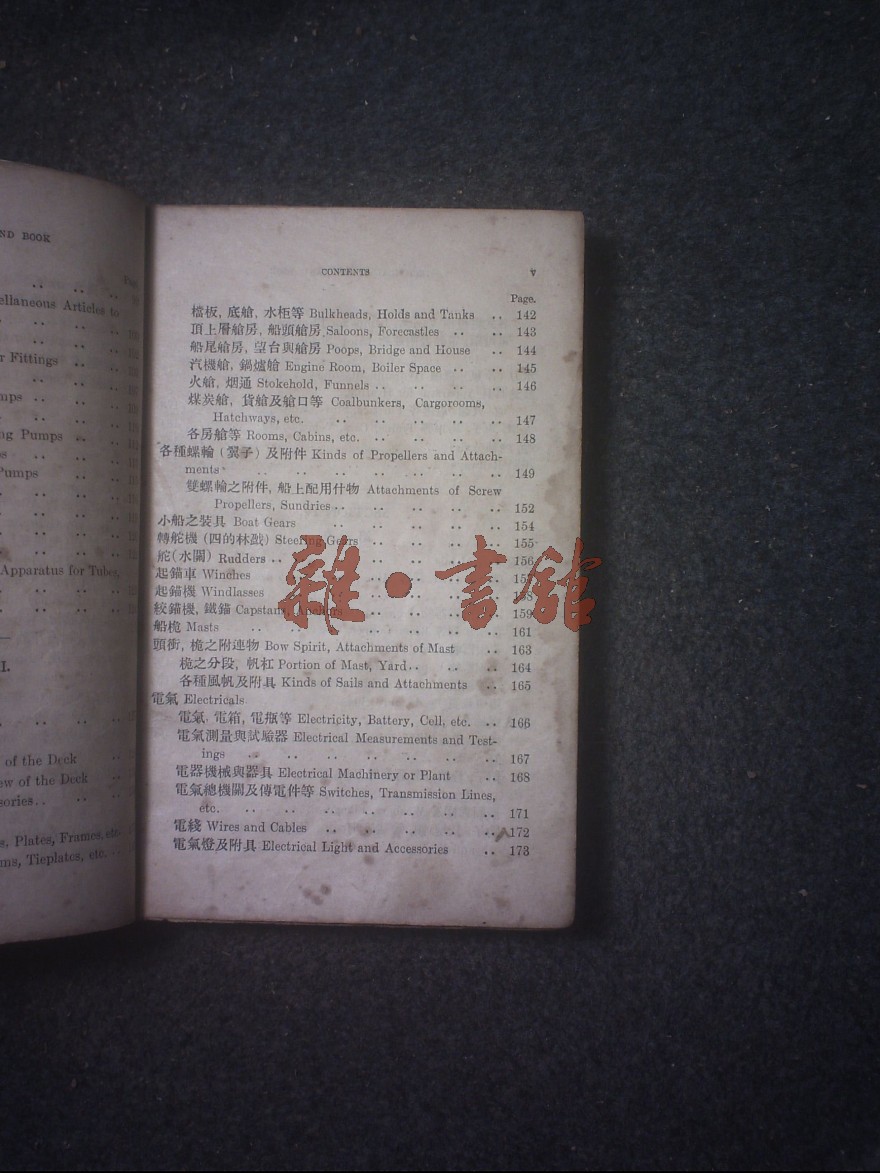 ND BOOK
ellaneous Articles to
r Fittings
mps
ng Pumps
s
Pumps
Apparatus for Tubes,
I.
of the Deck
ew of the Deck
sories
s, Plates, Frames, etc.
ms, Tieplates, etc.
CONTENTS v
Page.
檔板, 底艙, 水柜等 Bulkheads, Holds and Tanks .. 142
頂上層艙房, 船頭艙房 Saloons, Forecastles .. .. 143
船尾艙房, 望台與艙房 Poops, Bridge and House .. 144
汽機艙, 鍋爐艙 Engine Room, Boiler Space .. .. 145
火艙, 烟通 Stokehold, Funnels .. .. .. .. 146
煤炭艙, 貨艙及艙口等 Coalbunkers, Cargorooms,
Hatchways, etc. .. .. .. .. .. 147
各房艙等 Rooms, Cabins, etc. .. .. .. .. 148
各種螺輪 (翼子) 及附件 Kinds of Propellers and Attach-
ments .. .. .. .. .. .. .. 149
雙螺輪之附件, 船上配用什物 Attachments of Screw
Propellers, Sundries .. .. .. .. .. 152
小船之裝具 Boat Gears .. .. .. .. .. 154
轉舵機 (四的林戤) Steering Gears .. .. .. 155
舵(水關) Rudders .. .. .. .. .. .. 156
起錨車 Winches .. 157
起錨機 Windlasses .. 158
絞錨機, 鐵錨 Capstans, Anchors .. .. .. 159
船桅 Masts .. .. .. .. .. .. .. 161
頭衝, 桅之附連物 Bow Spirit, Attachments of Mast .. 163
桅之分段, 帆杠 Portion of Mast, Yard .. .. .. 164
各種風帆及附具 Kinds of Sails and Attachments .. 165
電氣 Electricals
電氣, 電箱, 電瓶等 Electricity, Battery, Cell, etc. .. 166
電氣測量與試驗器 Electrical Measurements and Test-
ings .. .. .. .. .. .. .. 167
電器機械與器具 Electrical Machinery or Plant .. 168
電氣總機關及傳電件等 Switches, Transmission Lines,
etc. .. .. .. .. .. .. .. 171
電綫 Wires and Cables .. .. .. .. .. 172
電氣燈及附具 Electrical Light and Accessories .. 173
雜·書館